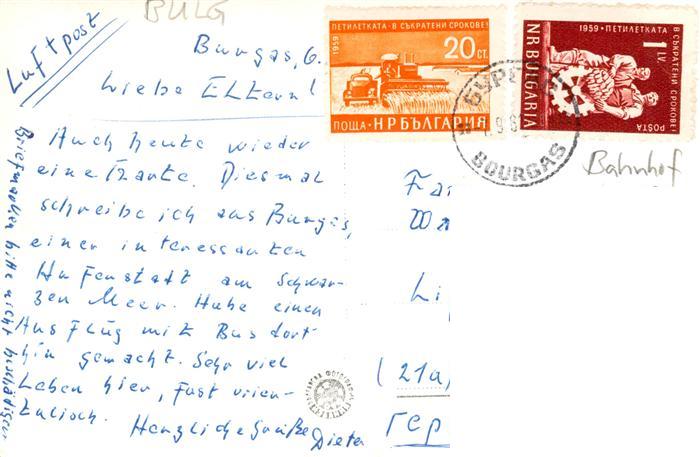 BULG
Luftpost
Burgas, 6.
Liebe Eltern!
Auch heute wieder
eine Karte. Diesmal
schreibe ich aus Burgas,
einer interessanten
Hafenstadt am Schwar-
zen Meer. Habe einen
Ausflug mit Bus dort
hin gemacht. Sehr viel
Leben hier, fast orien-
talisch.
Herzliche Grüße Dieter
Briefmarken bitte nicht beschädigen
ПЕТИЛЕТКАТА - В СЪКРАТЕНИ СРОКОВЕ!
1959
20 СТ.
ПОЩА НР БЪЛГАРИЯ
1959 · ПЕТИЛЕТКАТА В СЪКРАТЕНИ СРОКОВЕ!
1 LV.
NR BULGARIA
POSTA
BOURGAS
Bahnhof
Fa
Li
(21a,
ГЕР